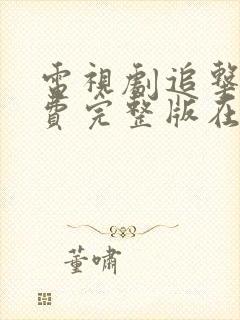 電視劇追擊
費完整版在
董嘯